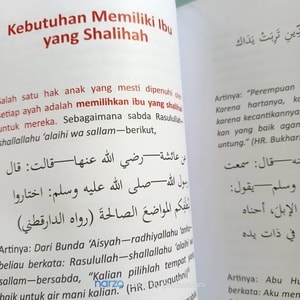 Kebutuhan Memiliki Ibu
yang Shalihah
Salah satu hak anak yang mesti dipenuhi
setiap ayah adalah memilihkan ibu yang shalihah
untuk mereka. Sebagaimana sabda Rasulullah—
shallallahu 'alaihi wa sallam—berikut,
عن عائشة—رضي الله عنها—قالت: قال
رسول الله—صلى الله عليه وسلم: اختاروا
لنطفكم المواضع الصالحة (رواه الدارقطني)
Artinya: Dari Bunda 'Aisyah—radhiyallahu 'anha—
beliau berkata: Rasulullah—shallallahu 'alaihi
wa sallam—bersabda, "Kalian pilihlah tempat
baik untuk air mani kalian." (HR. Daruquthni)
الدين تربت يداك
Artinya: "Perempuan
Karena hartanya,
karena kecantikannya,
kan yang baik agama
untung." (HR. Bukhari
قال: سمعت
وسلم—يقول:
الإبل، أحناه
في ذات يده
Artinya: Abu Hu